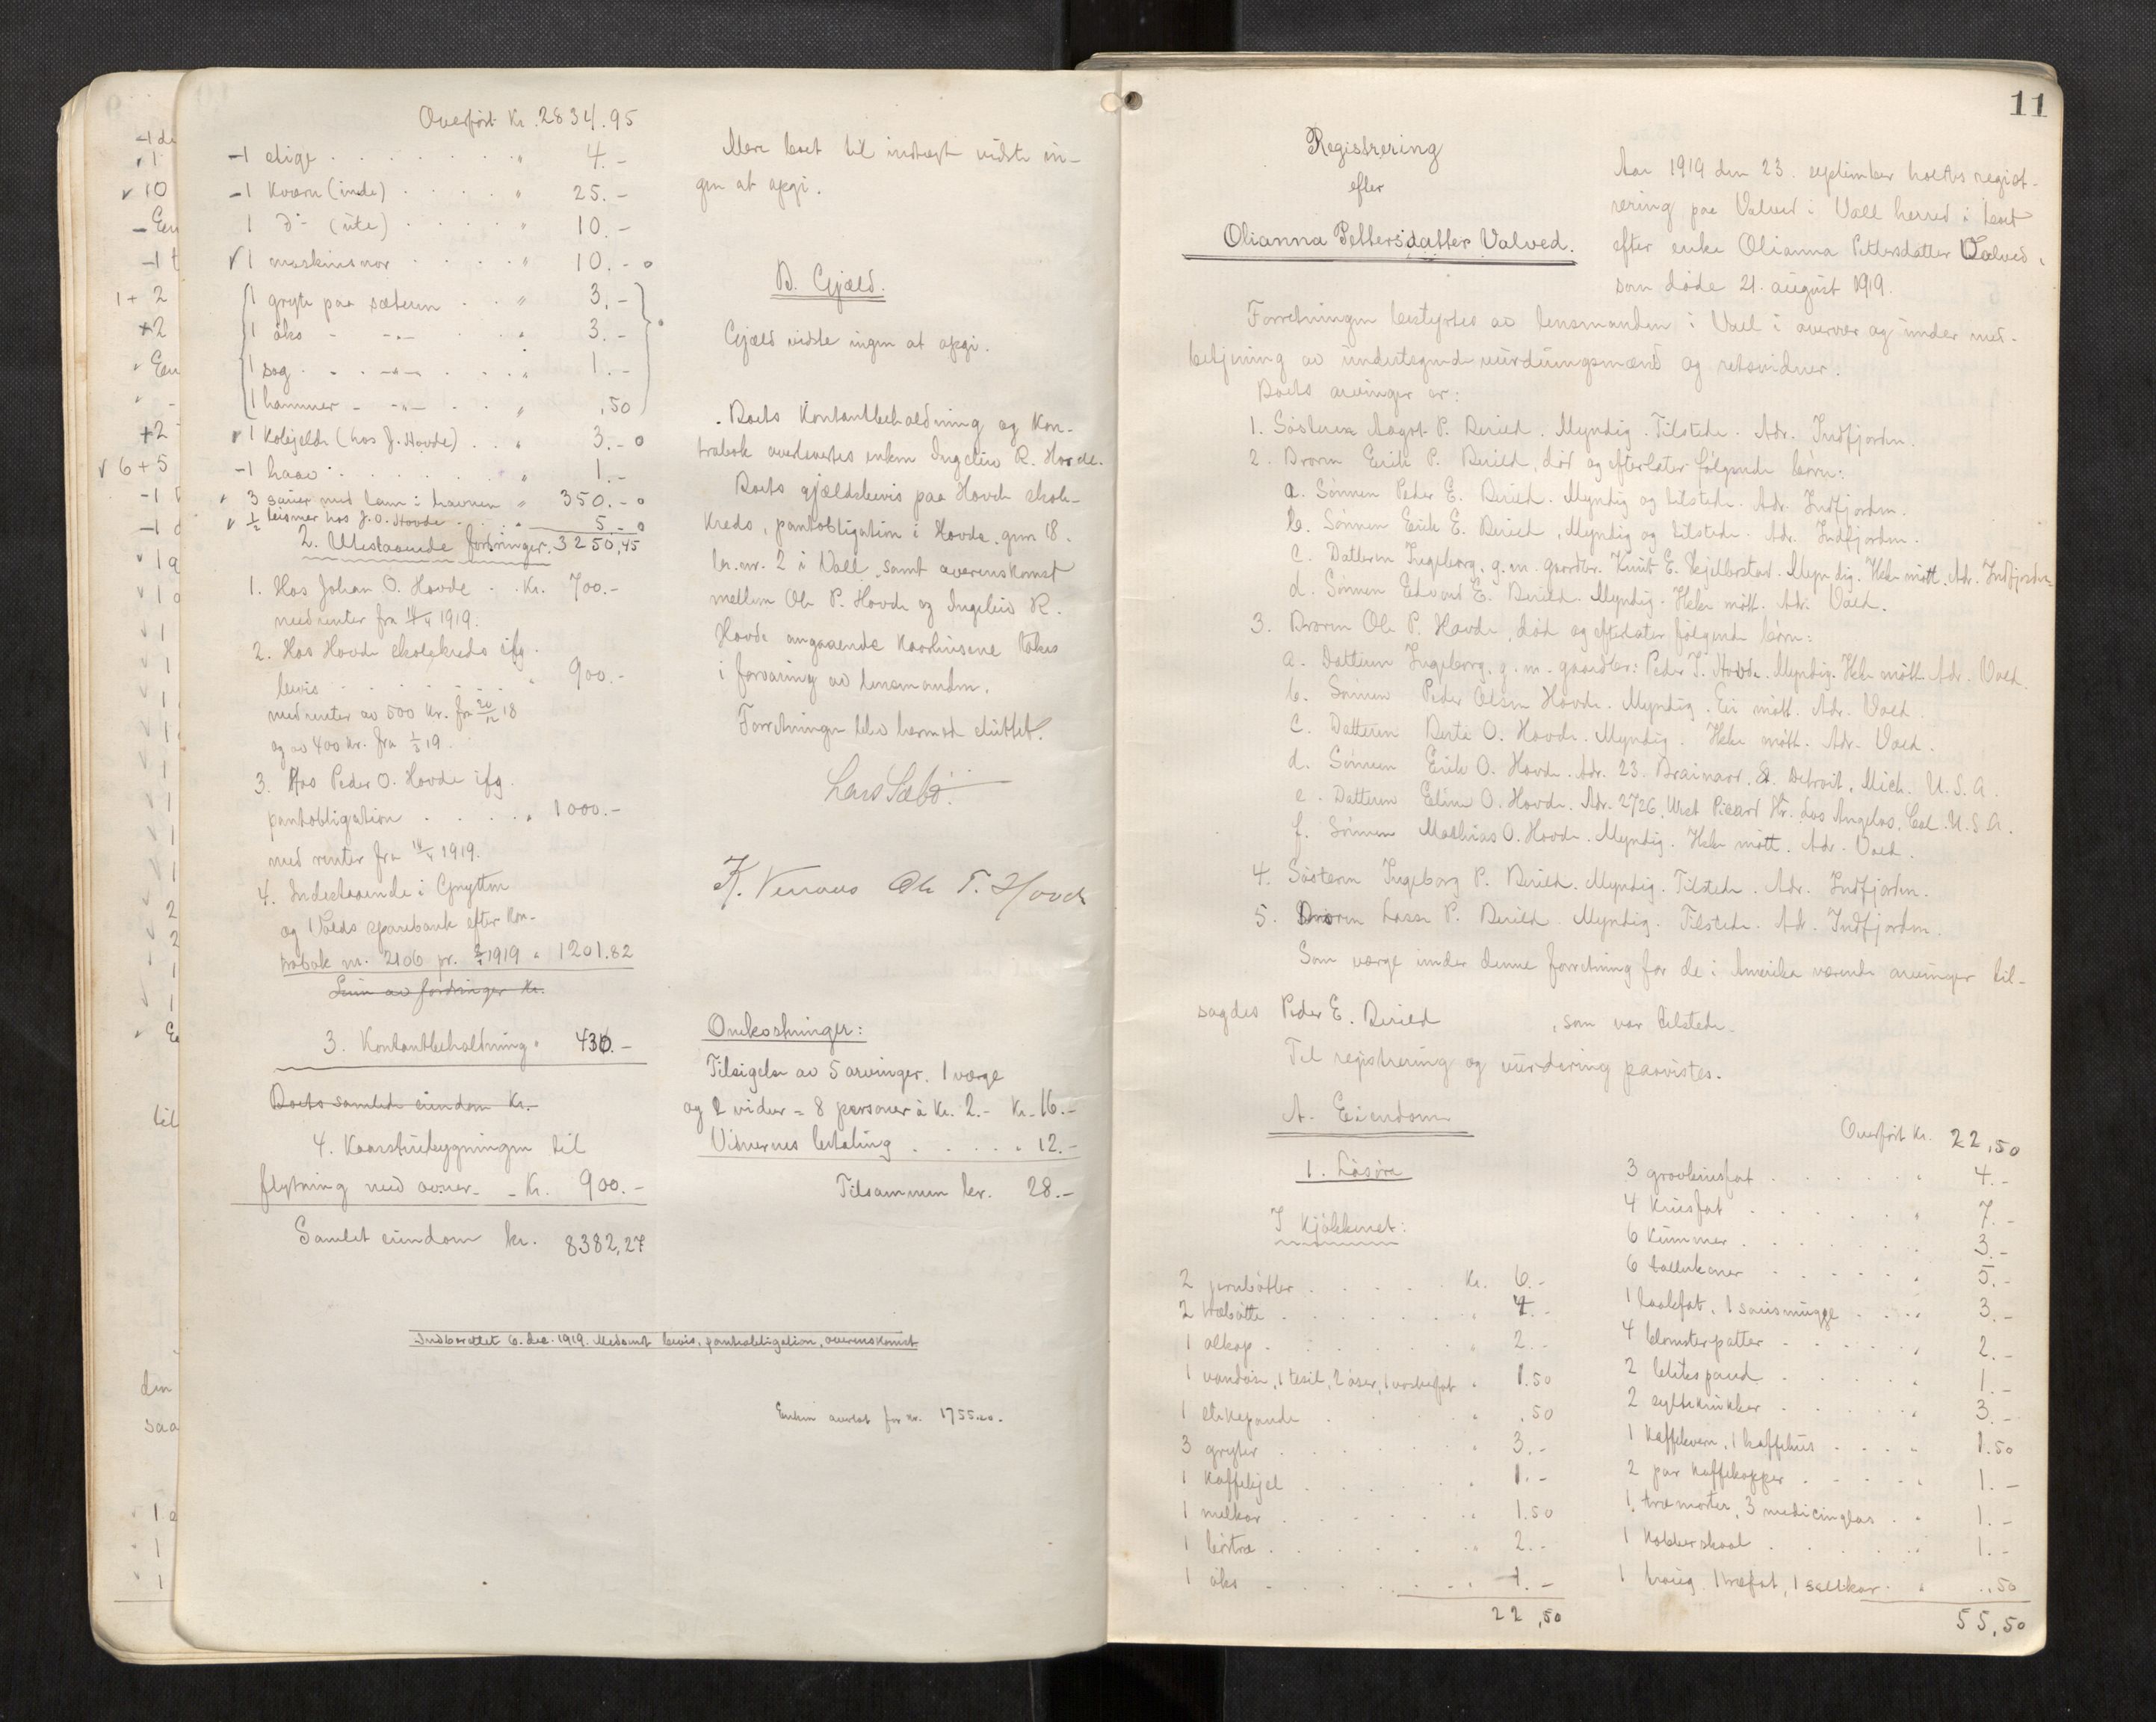 Overført Kr. 2834.95
-1 stige . . . . . . . " 4.-
-1 kværn (inde) . . . . " 25.-
1 do (ute) . . . . . " 10.-
√1 maskinsnor . . . . " 10.-o
1 gryte paa sæteren . . " 3.-
1 øks - -"- . . . " 3.-
1 sag . . . -"- . . . " 1.-
1 hammer - -"- . . . " ,50
√ 1 kobjelde (hos J. Hovde) . . " 3.-o
-1 haav . . . . . . . " 1.-
√ 3 sauer med lam i havnen " 350.-o
√ ½ bismer hos J. O. Hovde . . . " 5.-o
2. Utestaaende fordringer. 3250,45
1. Hos Johan O. Hovde . . Kr. 700.-
med renter fra 14/4 1919.
2. Hos Hovde skolekreds ifg.
bevis . . . . . . . " 900.-
med renter av 500 kr. fra 20/12 18
og av 400 kr. fra 1/3 19.
3. Hos Peder O. Hovde ifg.
pantobligation . . . . " 1000.-
med renter fra 14/4 1919.
4. Indestaaende i Grytten
og Volds sparebank efter kon-
trabok nr. 2106 pr. 1919 " 1201.82
Sum av fordringer Kr.
3. Kontantbeholdning " 430.-
Boets samlede eiendom Kr.
4. Kaarstuebygningen til
flytning med ovner - - Kr. 900.-
Samlet eiendom kr. 8382,27
Indberettet 6. dec. 1919. Medsendt bevis, pantobligation, overenskomst
Mere boet til indtægt vidste in-
gen at opgi.
B. Gjæld.
Gjæld vidste ingen at opgi.
Boets kontantbeholdning og kon-
trabok overlevertes enken Ingeleiv R. Hovde.
Boets gjældsbevis paa Hovde skole-
kreds, pantobligation i Hovde, gnr. 18.
br. nr. 2 i Vold, samt overenskomst
mellem Ole P. Hovde og Ingeleiv R.
Hovde angaaende kaarhusene tokes
i forvaring av lensmanden.
Forretningen blev hermed sluttet.
Lars Sæbø.
K. Venaas Ole T. Hovde
Omkostninger:
Tilsigelse av 5 arvinger, 1 verge
og 2 vidner = 8 personer à kr. 2.- Kr. 16.-
Vidnernes betaling . . . . . " 12.-
Tilsammen kr. 28.-
Enken overtat for kr. 1755.20.
11
Registrering
efter
Olianna Pettersdatter Valved.
Aar 1919 den 23. september holdtes regist-
rering paa Valved i Vold herred i boet
efter enke Olianna Pettersdatter Valved,
som døde 21. august 1919.
Forretningen bestyrtes av lensmanden i Vold i overvær og under med-
betjening av undertegnede vurderingsmænd og retsvidner.
Boets arvinger er:
1. Søsteren Aagot P. Berild. Myndig. Tilstede. Adr. Indfjorden.
2. Broren Erik P. Berild, død og efterlater følgende børn:
a. Sønnen Peder E. Berild. Myndig og tilstede. Adr. Indfjorden.
b. Sønnen Erik E. Berild, Myndig og tilstede. Adr. Indfjorden.
c. Datteren Ingeborg, g. m. gaardbr. Knut E. Skjelbostad. Myndig. Ikke møtt. Adr. Indfjorden.
d. Sønnen Edvard E. Berild. Myndig. Ikke møtt. Adr. Vold.
3. Broren Ole P. Hovde, død og efterlater følgende børn:
a. Datteren Ingeborg, g. m. gaardbr. Peder T. Hovde. Myndig. Ikke møtt. Adr. Vold.
b. Sønnen Peder Olsen Hovde. Myndig. Ei møtt. Adr. Vold
c. Datteren Berte O. Hovde. Myndig. Ikke møtt. Adr. Vold.
d. Sønnen Erik O. Hovde. Adr. 23. Brainard St. Detroit, Mich. U.S.A.
e. Datteren Eline O. Hovde. Adr. 2726, West Picard Str. Los Angelos. Cal. U.S.A.
f. Sønnen Mathias O. Hovde. Myndig. Ikke møtt. Adr. Vold.
4. Søsteren Ingeborg P. Berild. Myndig. Tilstede. Adr. Indfjorden.
5. Broren Lasse P. Berild. Myndig. Tilstede. Adr. Indfjorden.
Som verge under denne forretning for de i Amerika værende arvinger til-
sagdes Peder E. Berild, som var tilstede.
Til registrering og vurdering paavistes.
A. Eiendom
1. Løsøre
I kjøkkenet:
2 jernbøtter . . . . . Kr. 6.-
2 træbøtte . . . . . . " 4.-
1 olkop . . . . . . . " 2.-
1 vandøse, 1 tesil, 2 øser, 1 vaskefat " 1.50
1 stekepande . . . . . " .50
3 gryter . . . . . . " 3.-
1 kaffekjel . . . . . " 1.-
1 melkar . . . . . . " 1.50
1 børtre . . . . . . " 2.-
1 øks . . . . . . . " 1.-
22,50
Overført Kr. 22,50
3 grovbrusfat . . . . . . " 4.-
4 krusfat . . . . . . " 7.-
6 kummer . . . . . . . 3.-
6 tallerkener . . . . . " 5.-
1 laakfat, 1 sausmugge . . . " 3.-
4 blomsterpotter . . . . . " 2.-
2 blikspand . . . . . . " 1.-
2 syltekrukker . . . . . " 3.-
1 kaffekvern, 1 kaffehus . . . " 1.50
2 par kaffekopper . . . . . " 1.-
1 træmorter, 3 medicinglas . . " 1.-
1 kobberskaal . . . . . " 1.-
1 traug, 1 træfat, 1 saltkar . " .50
55,50